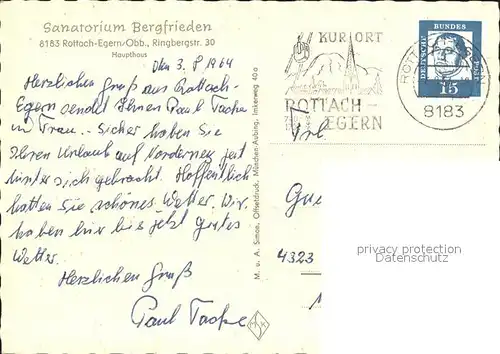 Sanatorium Bergfrieden
8183 Rottach-Egern/Obb., Ringbergstr. 30
Haupthaus
Den 3. 8 1964
Herzlichen Gruß aus Rottach-
Egern sendet Ihnen Paul Taske
u Frau. Sicher haben Sie
Ihren Urlaub auf Norderney jetzt
hinter sich gebracht. Hoffentlich
hatten Sie schönes Wetter. Wir
haben hier bis jetzt gutes
Wetter.
Herzlichen Gruß
Paul Taske
M. u. A. Simon, Offsetdruck, München-Aubing, Industrieweg 40a
KURORT
ROTTACH-
EGERN
ROTTACH
8183
DEUTSCHE
BUNDES
POST
15
Frl.
4323
privacy protection
Datenschutz